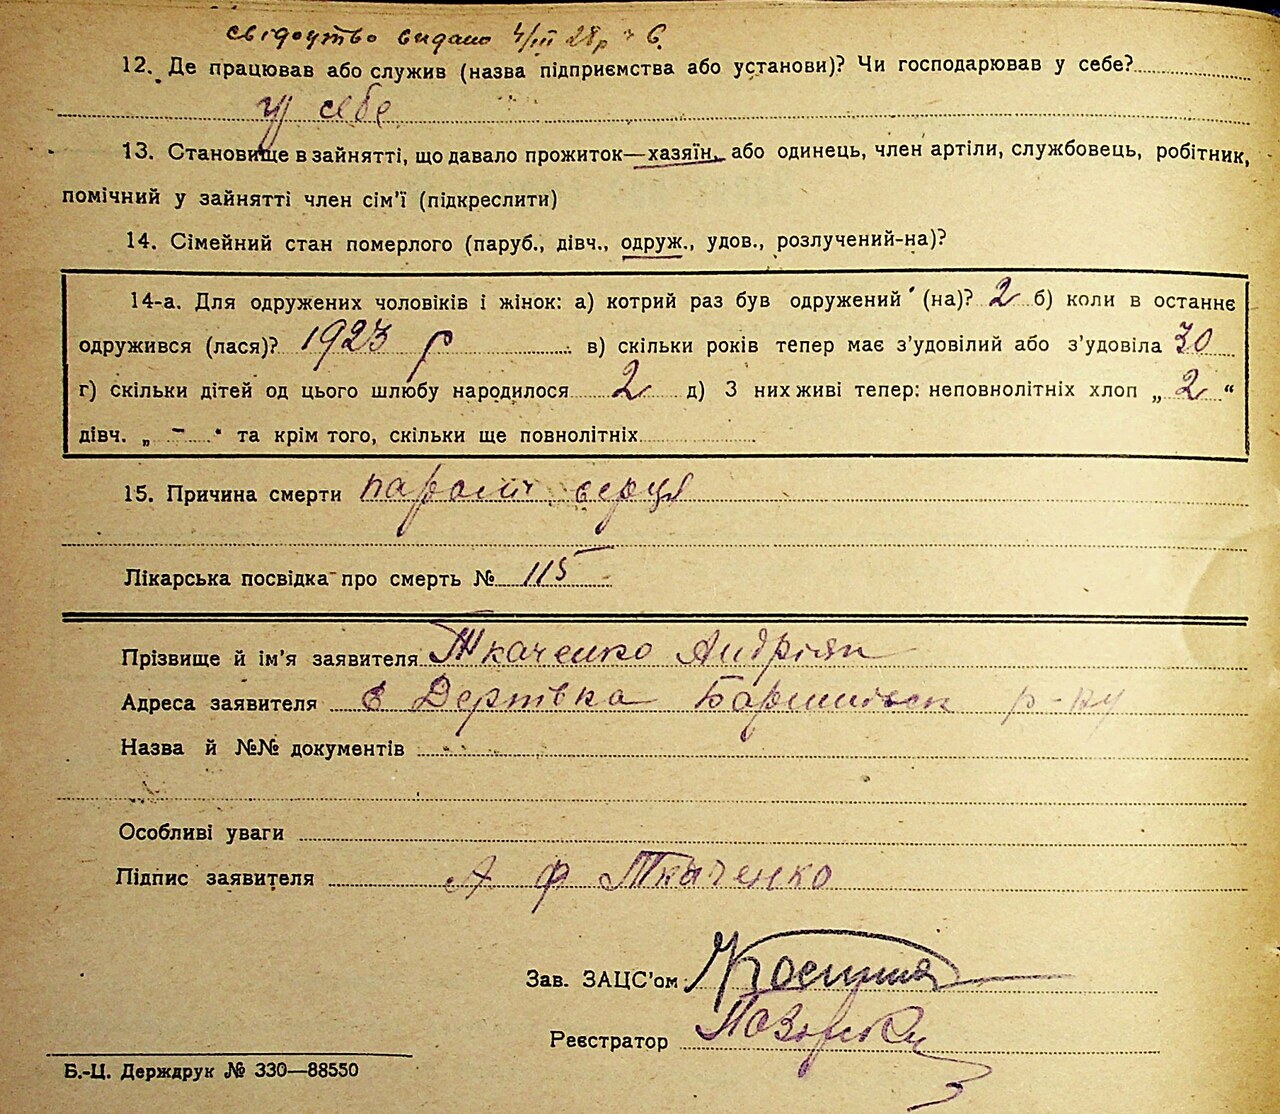 свідоцтво видано 4/III 28р
12. Де працював або служив (назва підприємства або установи)? Чи господарював у себе?
у себе
13. Становище в зайнятті, що давало прожиток—хазяїн, або одинець, член артіли, службовець, робітник,
помічний у зайнятті член сім'ї (підкреслити)
14. Сімейний стан померлого (паруб., дівч., одруж., удов., розлучений-на)?
14-а. Для одружених чоловіків і жінок: а) котрий раз був одружений (на)? 2 б) коли в останнє
одружився (лася)? 1923 р в) скільки років тепер має з'удовілий або з'удовіла 30
г) скільки дітей од цього шлюбу народилося 2 д) З них живі тепер: неповнолітніх хлоп „ 2 “
дівч. „ - “ та крім того, скільки ще повнолітніх
15. Причина смерти параліч серця
Лікарська посвідка про смерть № 115
Прізвище й ім'я заявителя Ткаченко Андріян
Адреса заявителя с Дертівка р-ну
Назва й №№ документів
Особливі уваги
Підпис заявителя А Ф Ткаченко
Зав. ЗАЦС'ом
Реєстратор
Б.-Ц. Держдрук № 330—88550